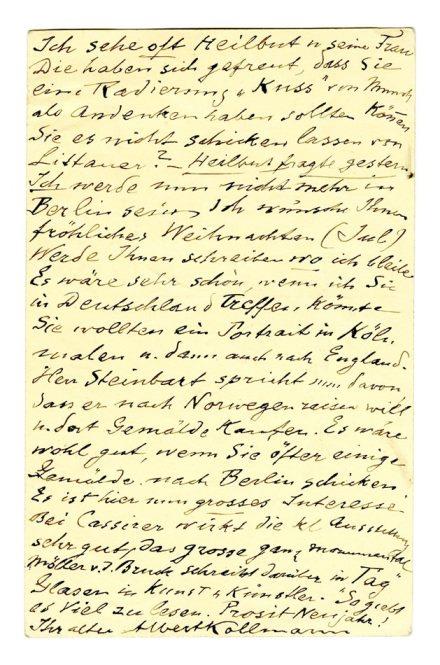 Ich sehe oft Heilbut u seine Frau
Die haben sich gefreut, dass Sie
eine Radierung „Kuss" von Munch
als Andenken haben sollten Können
Sie es nicht schicken lassen von
Littauer? – Heilbut fragte gestern
Ich werde nun nicht mehr in
Berlin sein. Ich wünsche Ihnen
fröhliches Weihnachten (Jul)
Werde Ihnen schreiben wo ich bleibe
Es wäre sehr schön, wenn ich Sie
in Deutschland Treffen könnte
Sie wollten ein Portrait in Köln
malen u. dann auch nach England.
Herr Steinbart spricht nun davon
dass er nach Norwegen reisen will
u. dort Gemälde Kaufen. Es wäre
wohl gut, wenn Sie öfter einige
Gemälde nach Berlin schicken
Es ist hier nun grosses Interesse
Bei Cassirer wirkt die kl Ausstellung
sehr gut, das grosse ganz monumental
Möller v. d. Bruck schreibt darüber in „Tag"
Glaser in Kunst u Künstler. So giebt
es Viel zu lesen. Prosit Neujahr!
Ihr alter Albert Kollmann